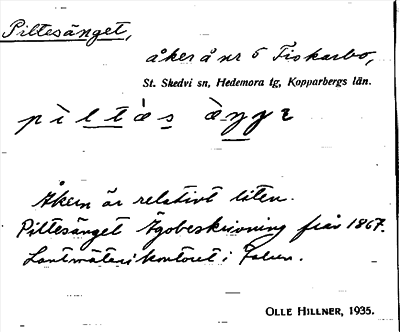 Piltesänget,
åker å nr 5 Fiskarbo,
St. Skedvi sn, Hedemora tg, Kopparbergs län.
Åkern är relativt liten.
Piltesänget Ägobeskrivning från 1867.
Lantmäterikontoret i Falun.
OLLE HILLNER, 1935.